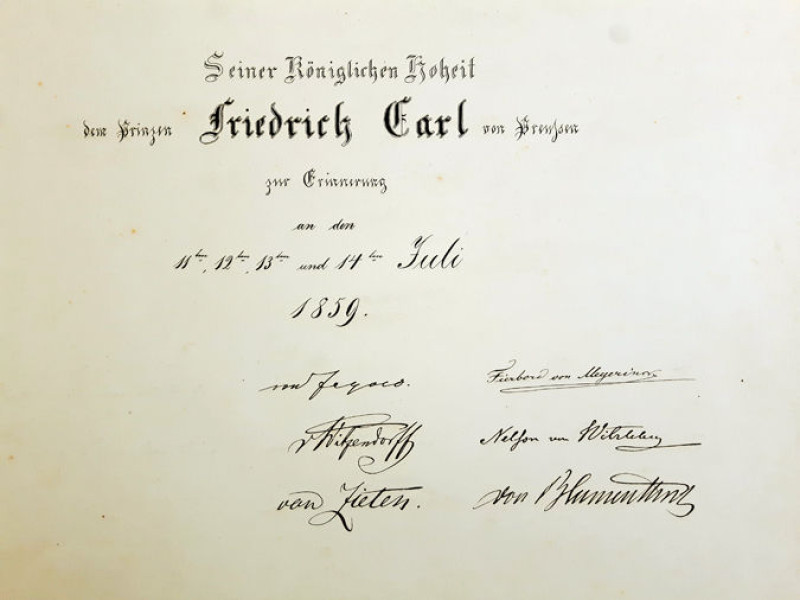 Seiner Königlichen Hoheit
dem Prinzen Friedrich Carl von Preußen
zur Erinnerung
an den
11ten, 12ten, 13ten und 14ten Juli
1859.
von
von Meyerinck
v Witzendorff
von Witzleben
von Zieten.
von Blumenthal